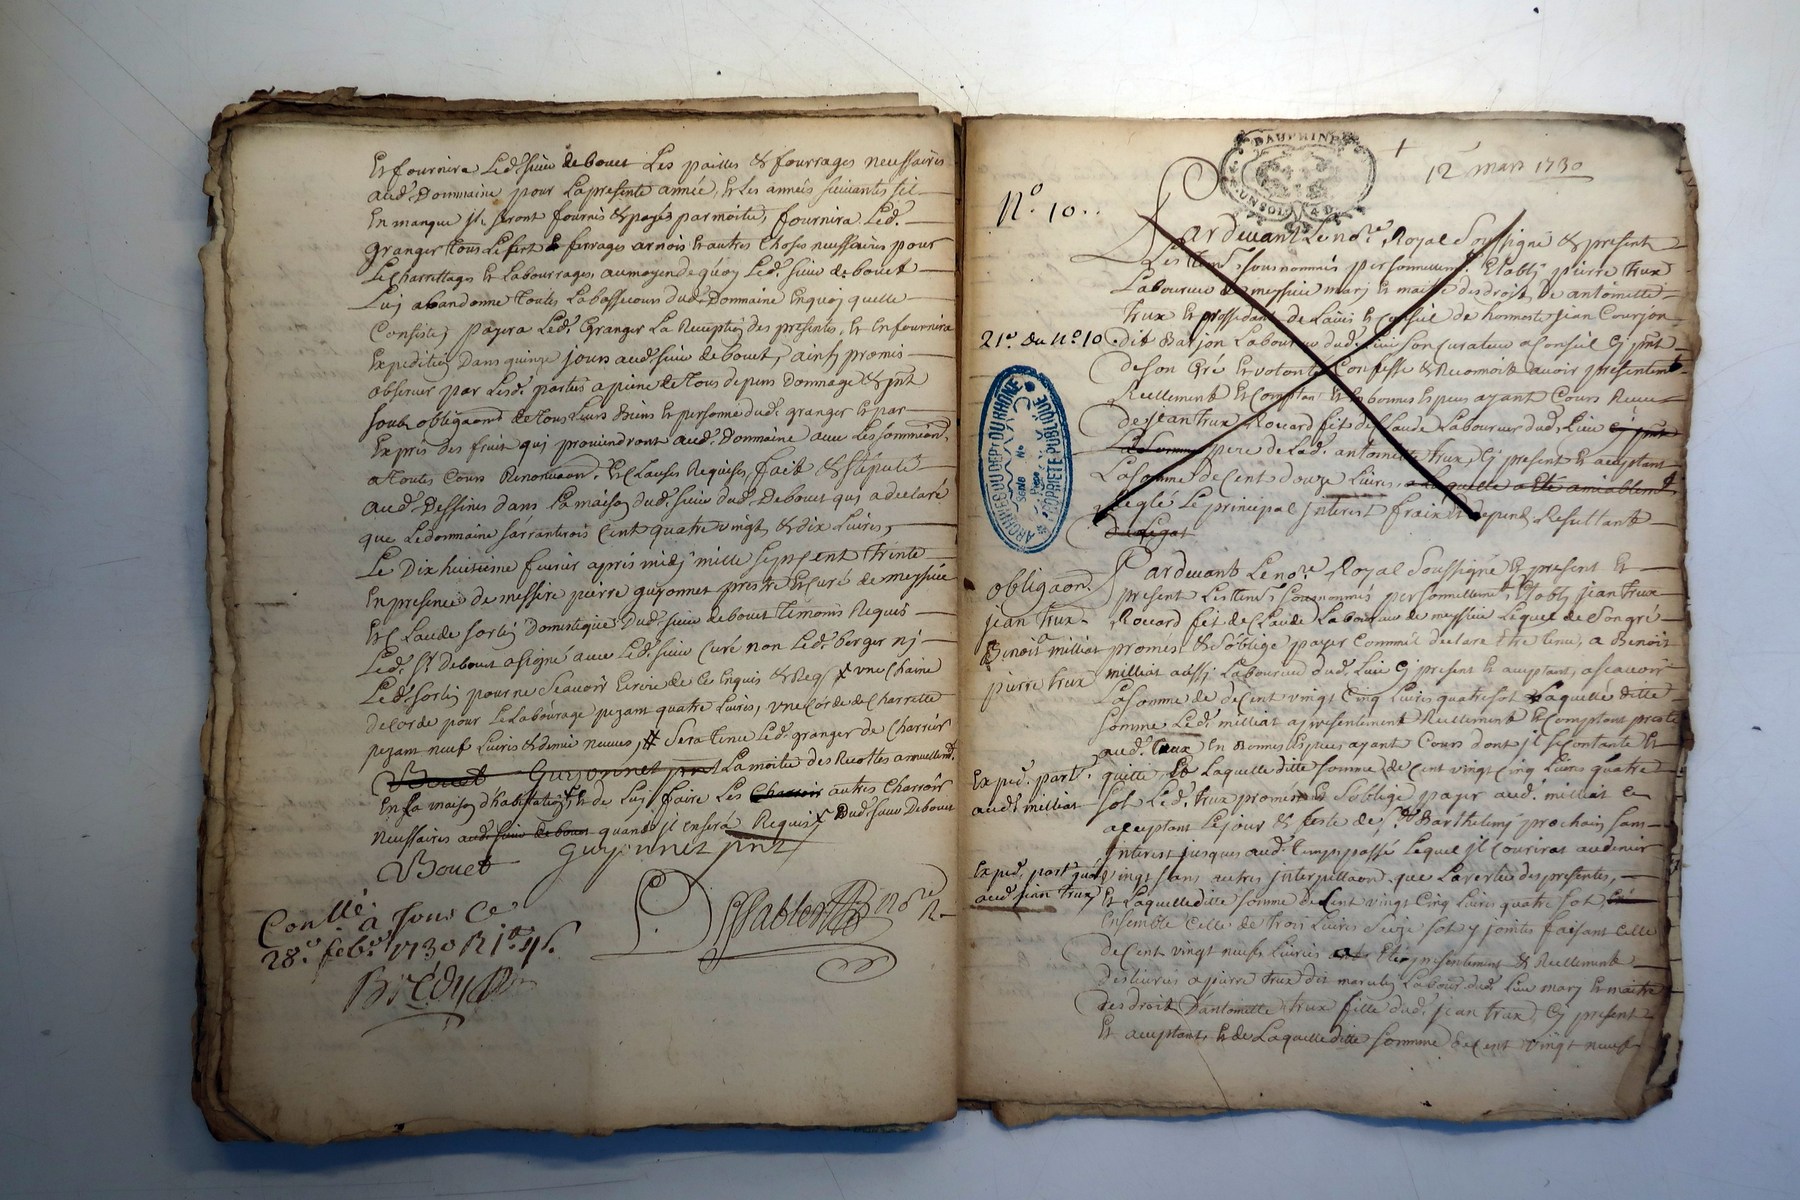 Et fournira Led. sieur de bouet Les pailles & fourrages neussaires
aud. Dommaine pour La presente année, Et Les années suivantes sil
En manque jls seront fournis & payés par moitié, fournira Led.
Granger tous Le fert & ferrages arnois Et autres Choses neussaires pour
Le Charrittages Et Labourrages, aumoyen de quoy Led. sieur de bouet
Luj abandonne toutes La bassecour dud. Dommaine En quoy quelle
Consiste, payera Led. Granger La Reception des presentes, Et En fournira
Expedition Dans quinze jours aud. sieur de bouet, ainsy promis
observer par Lesd. parties a peine de tous depens Dommage & jnt
soub obligaond de tous Leurs Biens Et personne dud. granger Et par
Exprés des fruit quj proviendront aud. Dommaine avec Les sommion
a toutes Cours Renontiaon. Et Clauses Requises, fait & stipulé
aud. Dessines dans La maison dud. sieur dud. Debouet quj a declaré
que Le dommaine sarranterois Cent quatre vingt & dix Livres,
Le Dix huitieme fevrier apres midj mille sept cent trente
En presence de messire pierre guyonnet prestre Et Curé de meyssiée
Et Claude sorlin Domestique dud. sieur de bouet temoins Requis
Led. Sr. debouet a signé avec Led. sieur Curé non Led. berger nj
Led. sorlin pour ne Scavoir Ecrire de Ce Enquis & Req. x une Chaine
de Corde pour Le Labourage pezant quatre Livres, une Corde de Charrette
pezam neuf Livres & demie neuves, # Sera tenu Led. granger de Charrier
Bouet Guyonnet pnt La moitié des Recoltes annuellemt.
En sa maison d'habitation, Et de Luj faire Les Charroir autres Charroir
Neussaires aud. sieur de bouet quand jl En sera Requis x Dud. sieur Debouet
Bouet guyonnet pnt
Conllé
a sous Ce
28. feb. 1730 R
12 mars 1730
DAUPHINE
N.o 10..
Pardevant Le nore. Royal Soussigné & present
Les tem. sousnommés personnellemt. Etably pierre trux
Laboureur de meyssiée marj Et maitre des droits de antoinette
trux Et proceddant de L'avis Et Conseil de honneste jean Courjon
21e. du No 10
dit Barjon Laboureur dud. Lieu son Curateur a Conseil Cj pnt
de son Gré Et volonté Confesse & Reconnoit avoir presentemt.
Reellement Et Comptant Et En bonnes Espeus ayant Cours Receu
de jean trux Rouard fils de Claude Laboureur dud. Lieu Cj pnt
pere de Lad. antoinette trux, Cj present Et aceptant
La somme de Cent douze Livres, a Laquelle a Eté amiablemt.
Reglé Le principal jnterest fraix Et depens Resultant
du Legat
ARCHIVES DU DEPT DU RHONE
PROPRIETE PUBLIQUE
obligaon.
jean trux
a
Benoit milliat
pierre trux
Pardevant Le nore. Royal Soussigné Et present Et
present Les tem. sousnommés personnellemt. Etably jean trux
Rouard fils de Claude Laboureur de meyssiée Lequel de son gré
promis & s'oblige payer comme il declare être tenu, a Benoit
milliat aussj Laboureur dud. Lieu Cj present Et aceptant, ascavoir
La somme de Cent vingt Cinq Livres quatre sol Laquelle ditte
somme Led. milliat a presentement Reellement Et Comptant presté
aud. trux En Bonnes Espeus ayant Cours dont jl se Contante Et
Exped. part.
aud. milliat
quitte, Et Laquelle ditte somme de Cent vingt Cinq Livres quatre
sol Led. trux promis Et s'oblige payer aud. milliat Cj
aceptant Le jour & feste de St. Barthelemj prochain sans
jnterest jusques aud. temps passé Lequel jl Courirat au denier
Exped. part.
aud. jean trux
vingt sans autres jnterpellaon. que La vertu des presentes,
Et Laquelle ditte somme de Cent vingt Cinq Livres quatre sol,
Ensemble Celle de trois Livres seize sol y jointes faisant Celle
de Cent vingt neuf Livres presentement & Reellement
deslivrés a pierre trux dit Labour. dud. Lieu marj Et maitre
des droit d'antoinette trux fille dud. jean trux, Cj present
Et aceptant, Et de Laquelle ditte somme de Cent vingt neuf